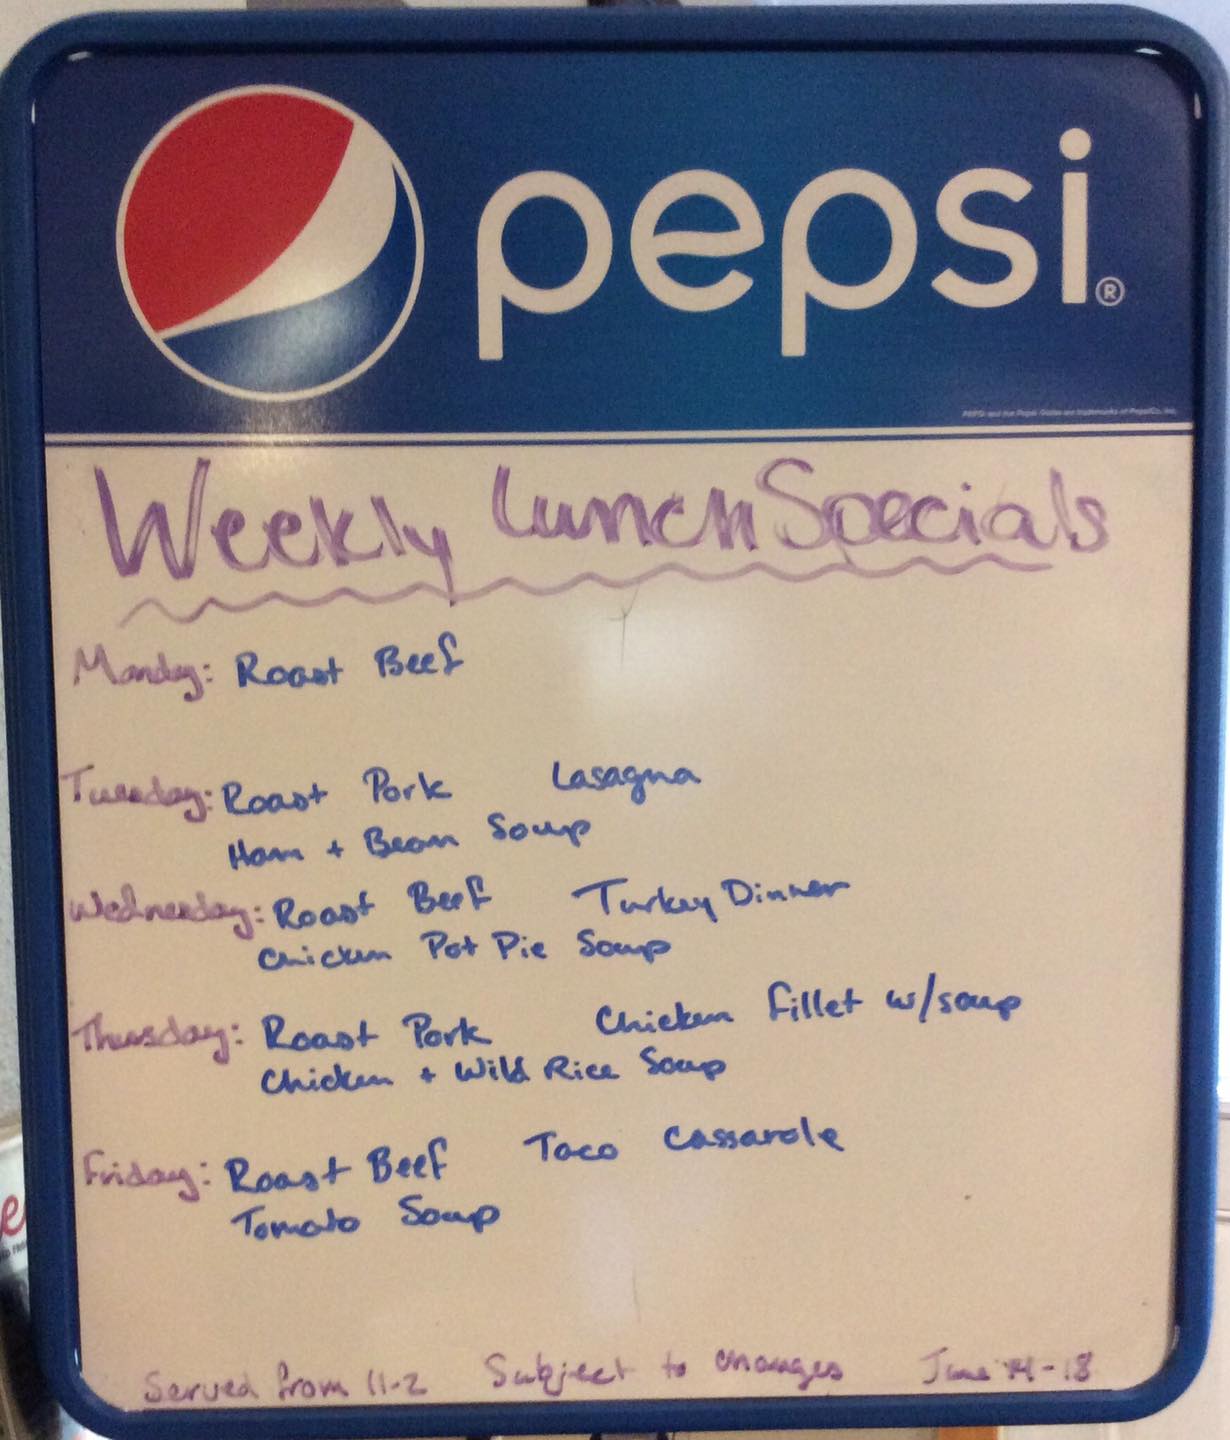 pepsi®
PEPSI and the Pepsi Globe are trademarks of PepsiCo, Inc.
Weekly Lunch Specials
Monday: Roast Beef
Tuesday: Roast Pork Lasagna
Ham + Bean Soup
Wednesday: Roast Beef Turkey Dinner
Chicken Pot Pie Soup
Thursday: Roast Pork Chicken fillet w/soup
Chicken + Wild Rice Soup
Friday: Roast Beef Taco Cassarole
Tomato Soup
Served from 11-2 Subject to changes June 14-18